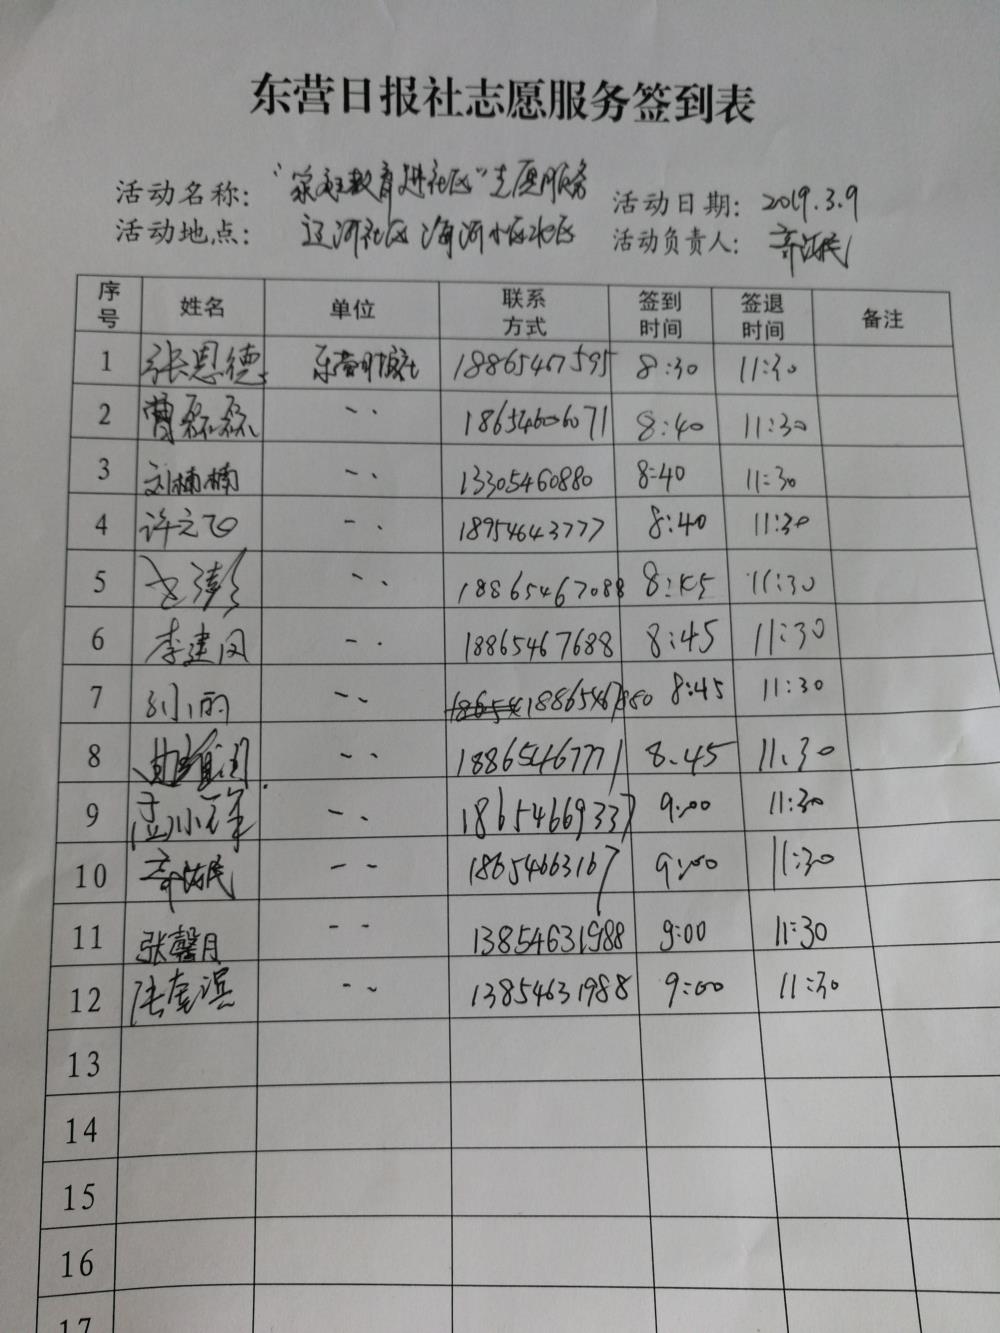 东营日报社志愿服务签到表
活动名称： "家庭教育进社区"志愿服务 活动日期： 2019.3.9
活动地点： 辽河社区 海河小区北区 活动负责人：
序号 姓名 单位 联系方式 签到时间 签退时间 备注
1 张恩德 东营日报社 18865467595 8:30 11:30
2 曹磊磊 18654606071 8:40 11:30
3 刘楠楠 13305460880 8:40 11:30
4 许立飞 18954643777 8:40 11:30
5 18865467088 8:45 11:30
6 李建风 18865467688 8:45 11:30
7 8:45 11:30
8 18865467771 8.45 11.30
9 18654669337 9:00 11:30
10 18654663167 9:00 11:30
11 张馨月 13854631988 9:00 11:30
12 13854631988 9:00 11:30
13
14
15
16
17